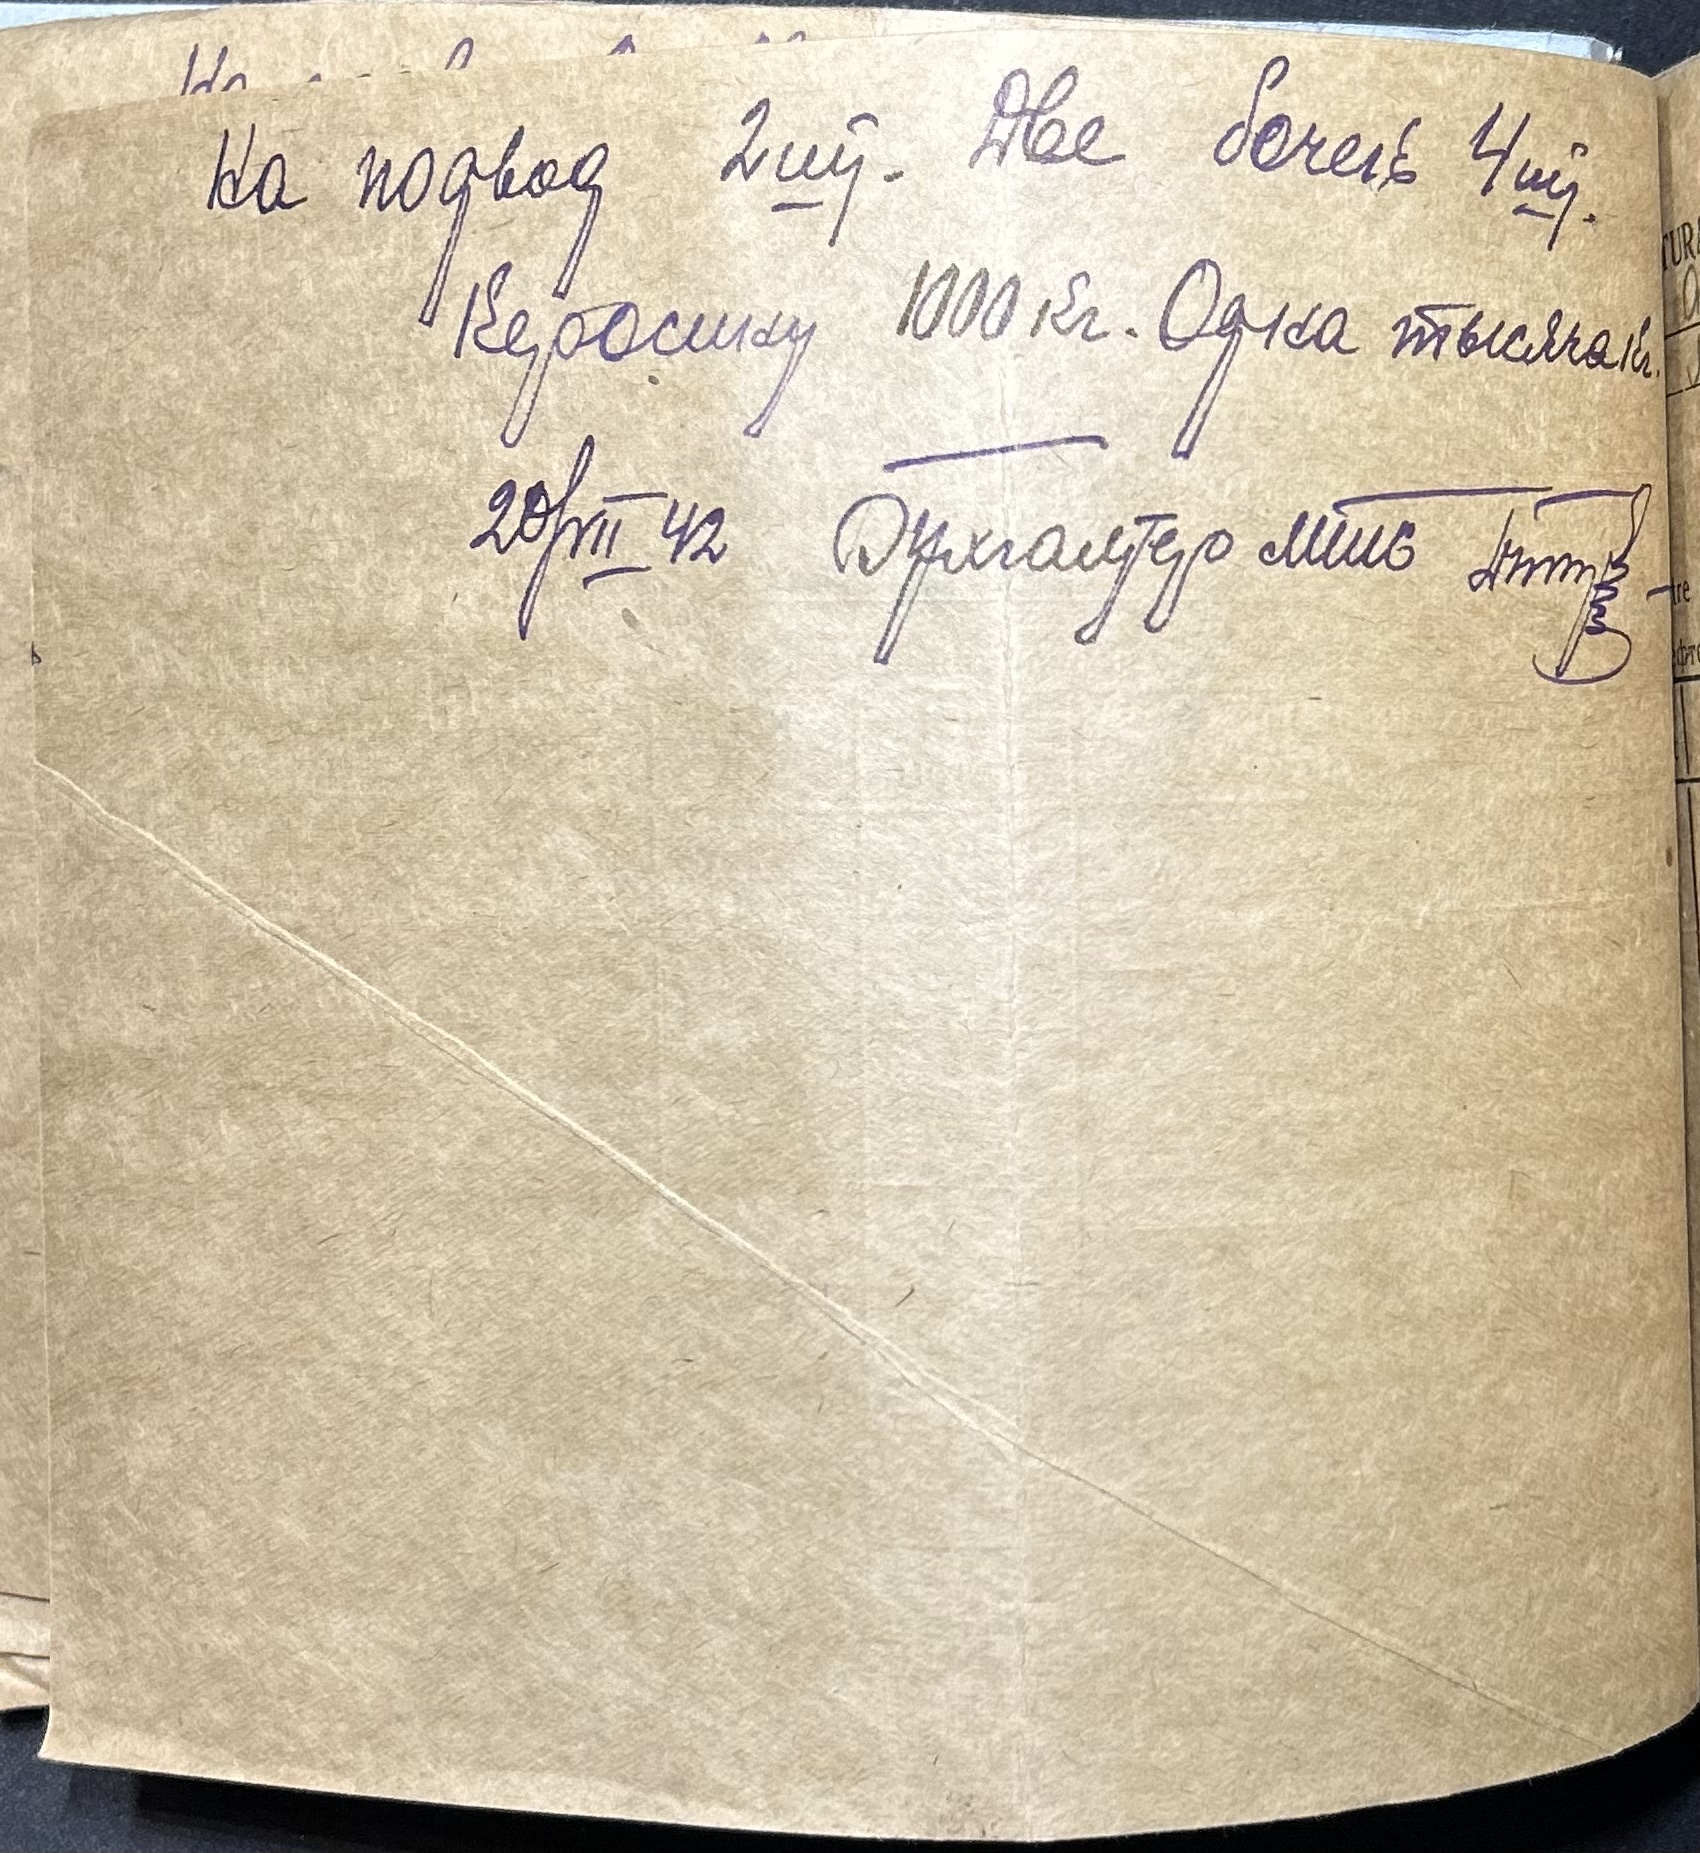 На
На подвод 2 шт. Две бочек 4 шт.
Керосину 1000 кг. Одна тысяча кг.
20/VII 42 Бухгалтер мтс